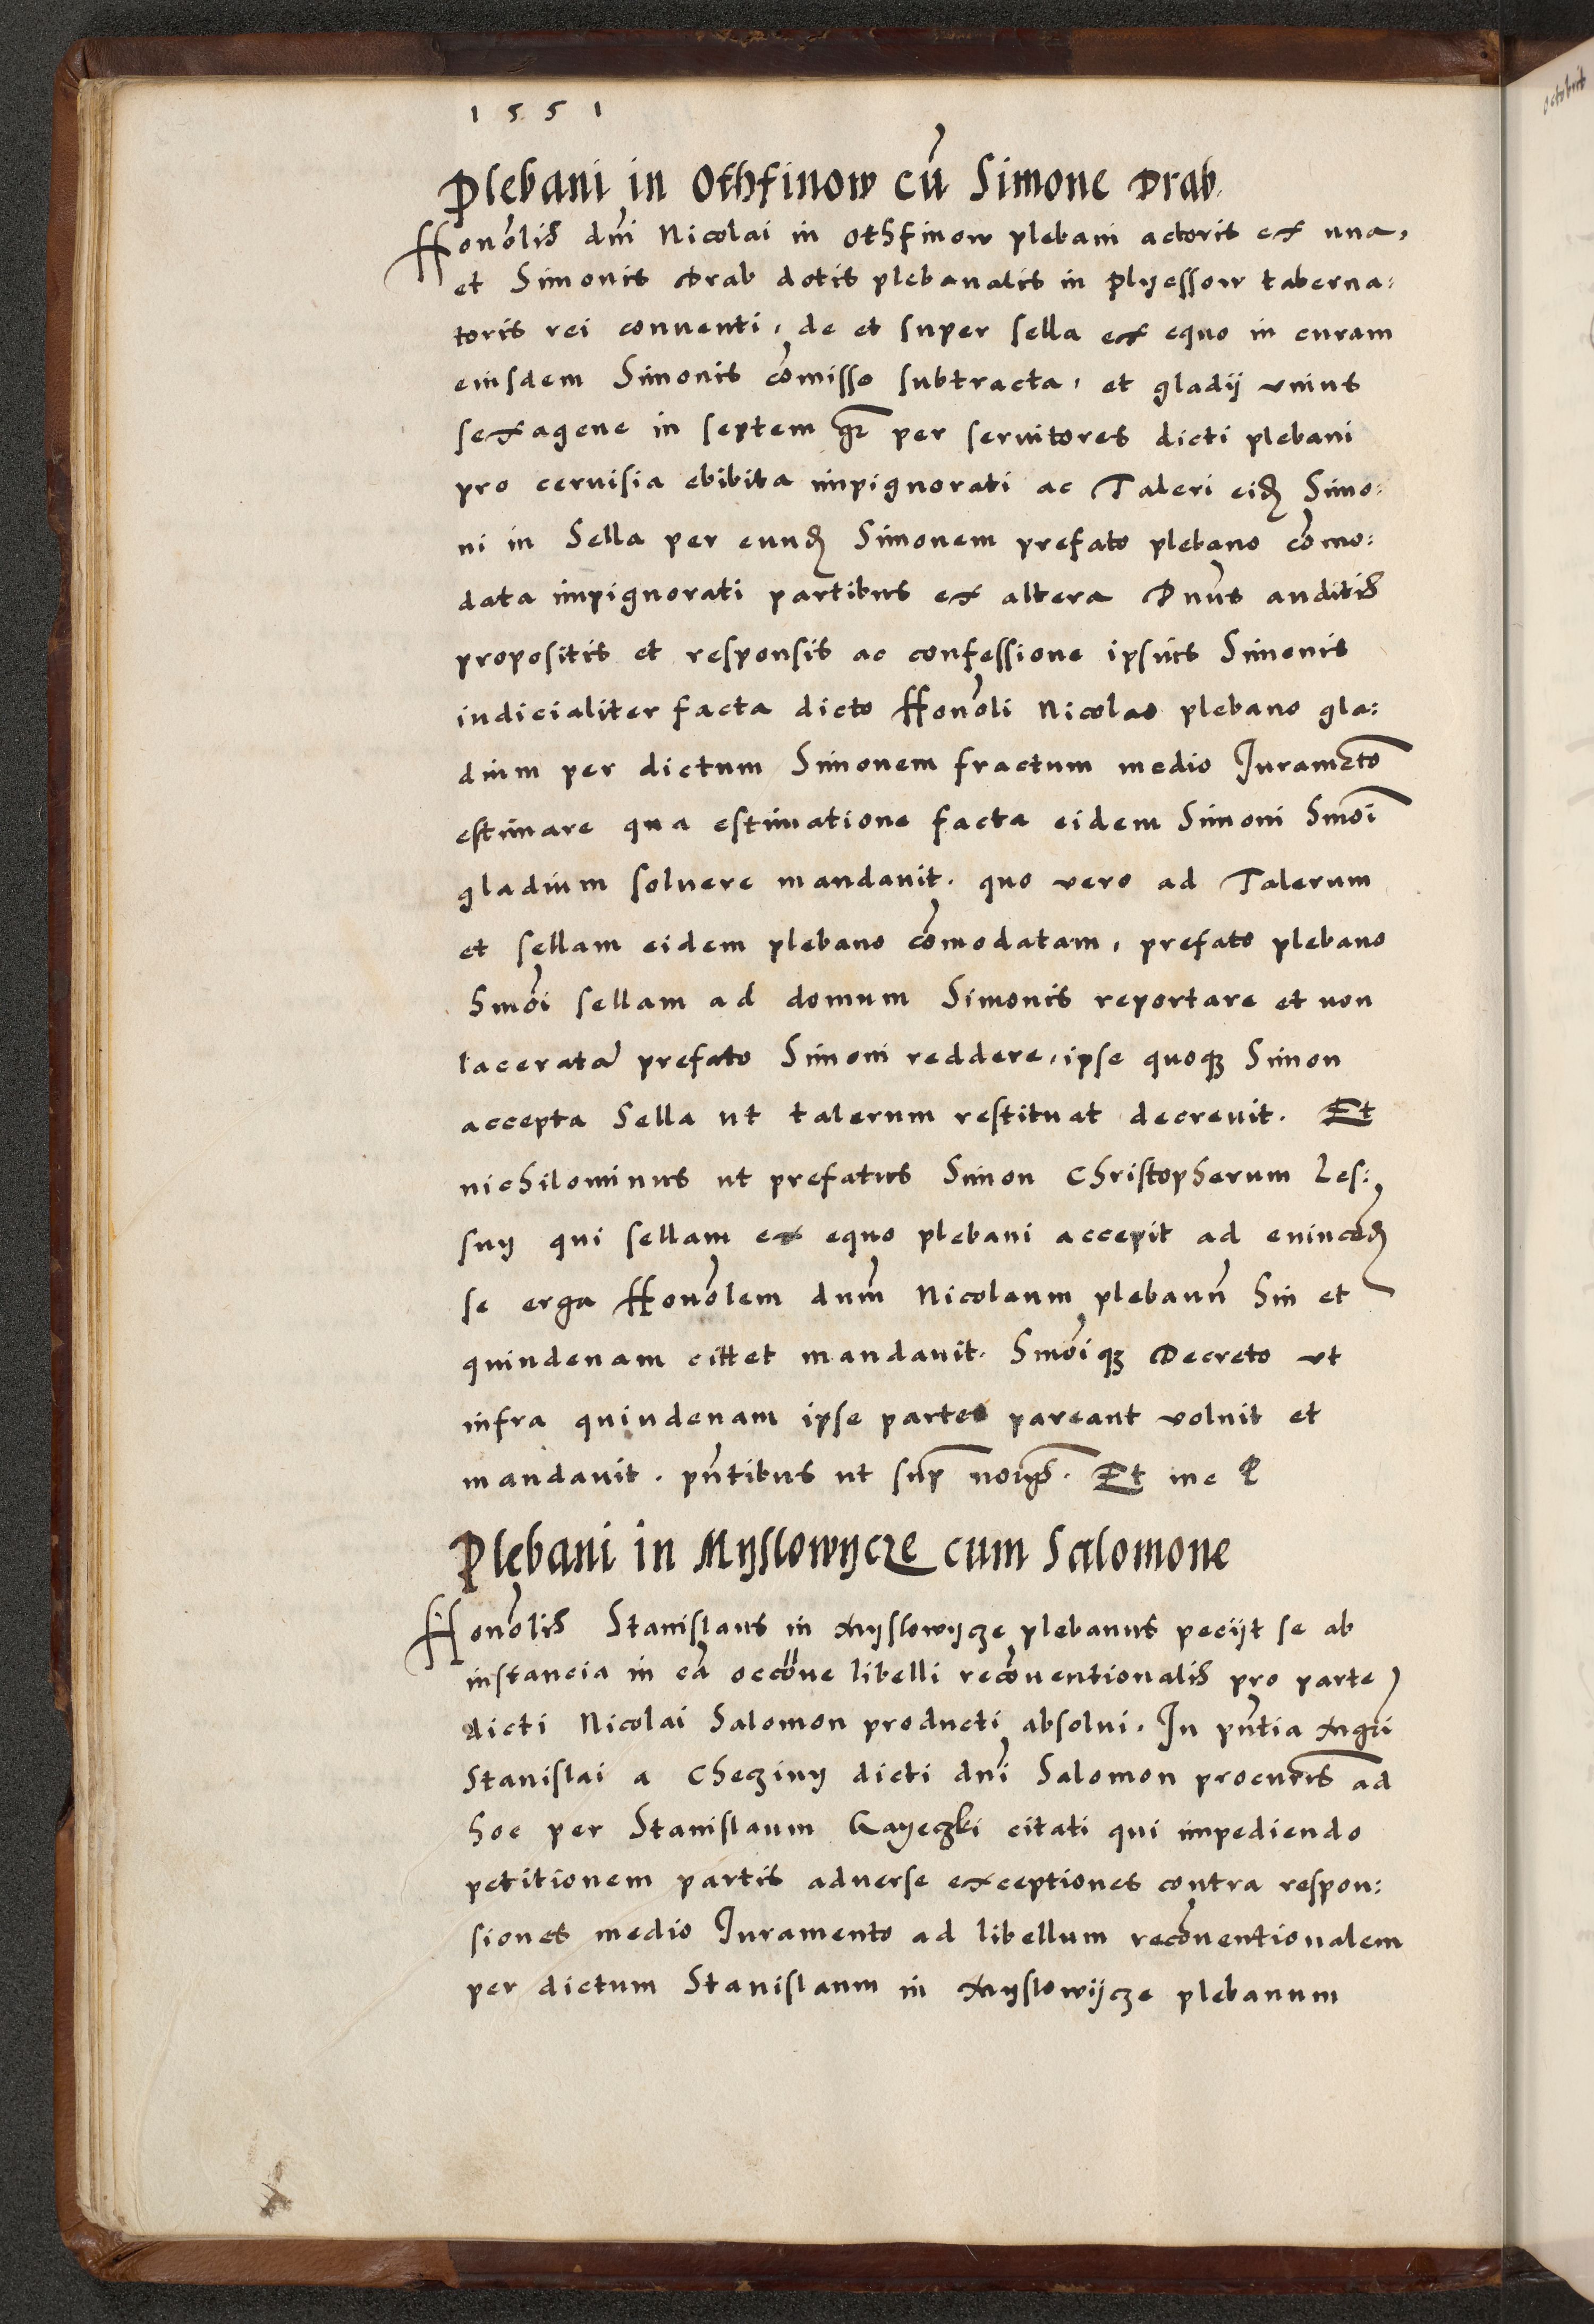 1551
Plebani in Othfinow cū Simone Drab
Honōlis dn̄i Nicolai in Othfinow plebani actoris ex una,
et Simonis Drab dotis plebanalis in Plyessow taberna:
toris rei conventi, de et super sella ex equo in curam
eiusdem Simonis cōmisso subtracta, et gladij unius
sexagene in septem gr̄ per servitores dicti plebani
pro cervisia ebibita impignorati ac Taleri eid Simo:
ni in Sella per eund Simonem prefato plebano cōmo:
data impignorati partibus ex altera Dn̄us auditis
propositis et responsis ac confessione ipsius Simonis
iudicialiter facta dicto Honōli Nicolao plebano gla:
dium per dictum Simonem fractum medio Iuramēto
estimare qua estimatione facta eidem Simoni Smōi
gladium solvere mandavit. quo vero ad Talerum
et sellam eidem plebano cōmodatam, prefato plebano
Smōi sellam ad domum Simonis reportare et non
laceratā prefato Simoni reddere, ipse quoq Simon
accepta Sella ut talerum restituat decrevit. Et
nichilominus ut prefatus Simon Christopherum Les:
sny qui sellam ex equo plebani accepit ad evincēd
se erga Honōlem dn̄um Nicolaum plebanū hin et
quindenam cittet mandavit. Smōiq Decreto ut
infra quindenam ipse partes pareant voluit et
mandavit. pn̄tibus ut sup̄ . Et me
Plebani in Myslowycze cum Salomone
Honōlis Stanislaus in Myslowycze plebanus peciit se ab
instancia in eā occōne libelli recōventionalis pro parte
dicti Nicolai Salomon producti absolvi. In pn̄tia Mgri
Stanislai a Checziny dicti dn̄i Salomon procur̄is ad
hoc per Stanislaum Gayeczki citati qui impediendo
petitionem partis adverse exceptiones contra respon:
siones medio Iuramento ad libellum recōventionalem
per dictum Stanislaum in Myslowycze plebanum